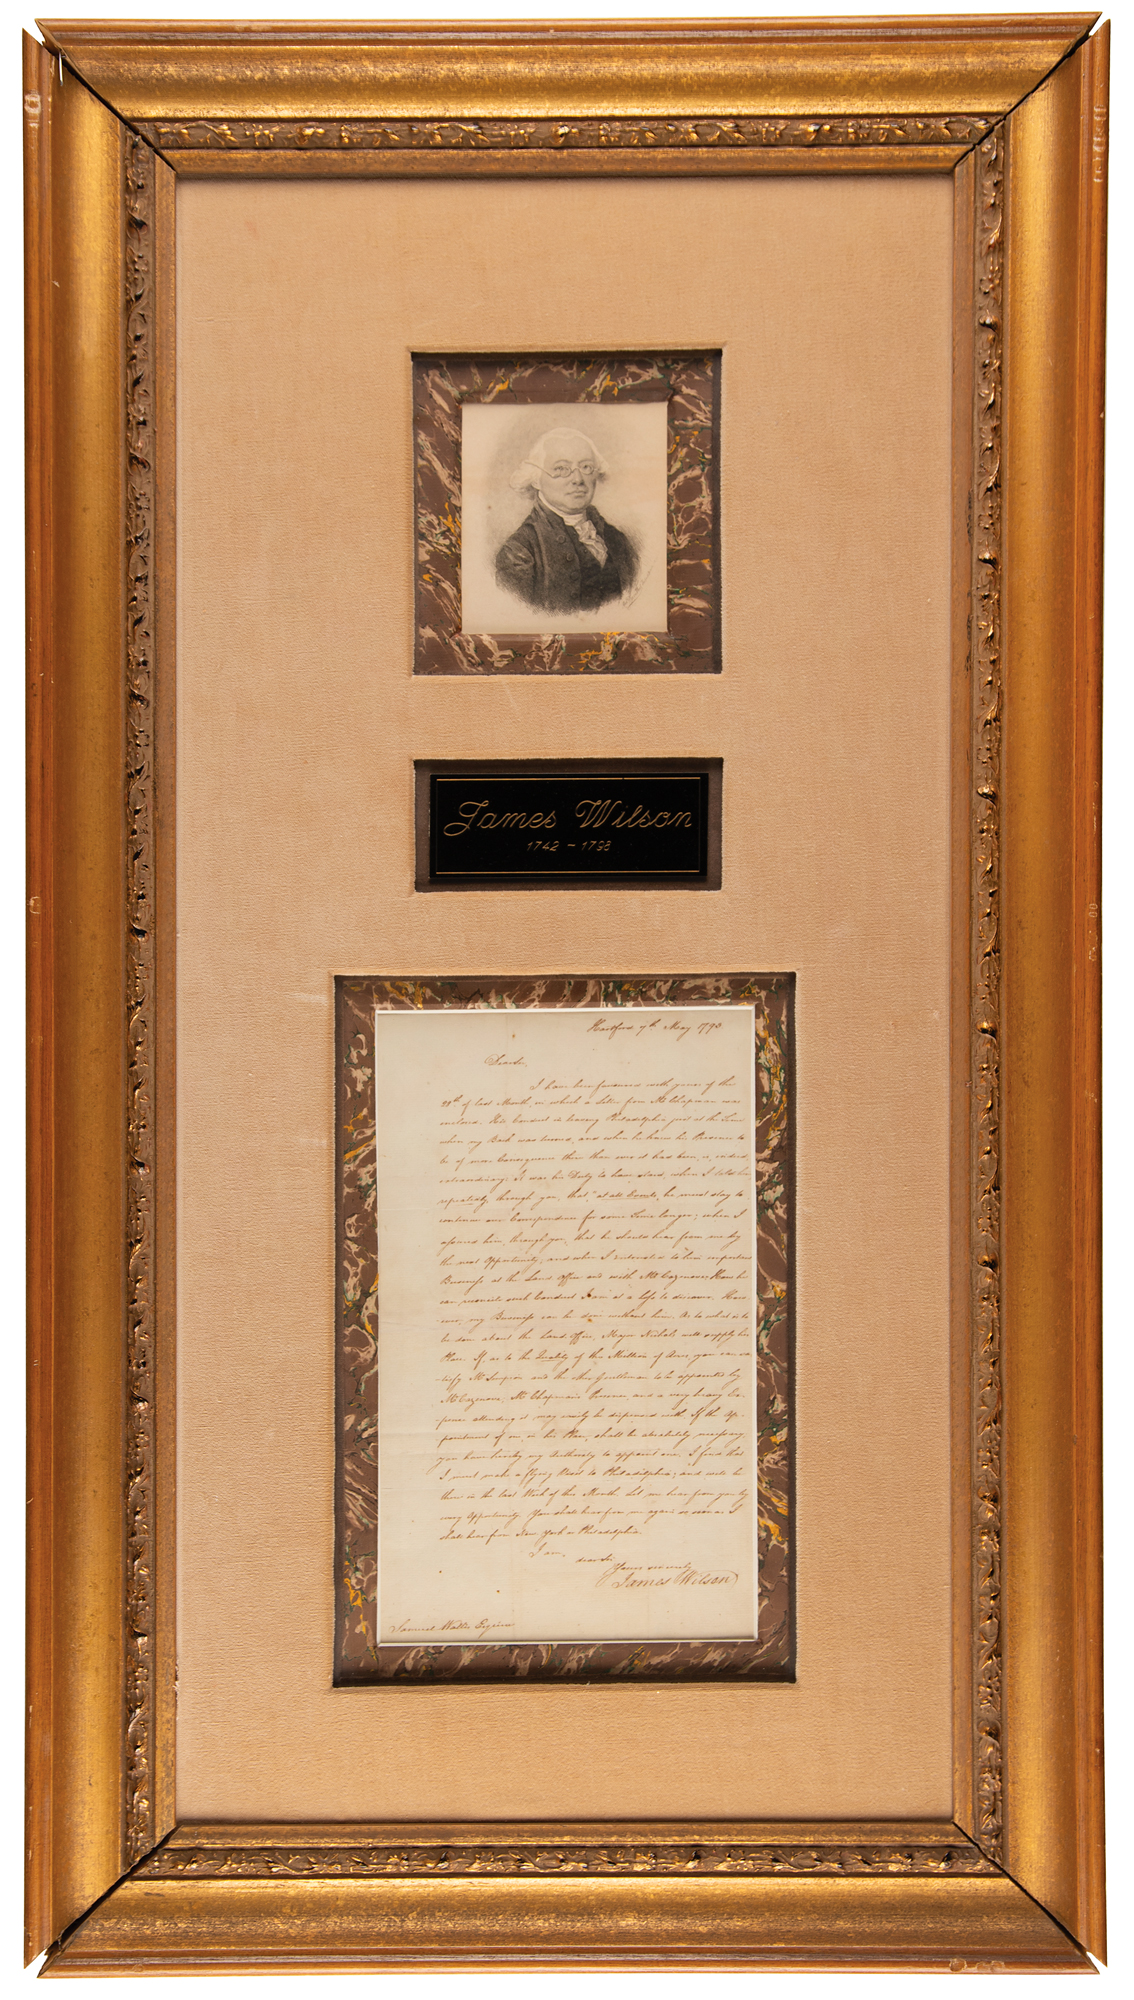 James Wilson
1742 - 1798
Hartford 7th May 1793
Dear Sir,
I have been favoured with yours of the
29th of last Month, in which a Letter from Mr Chapman was
enclosed. His Conduct in leaving Philadelphia just at the Time
when my Back was turned, and when he knew his Presence to
be of more Consequence there than ever it had been, is, indeed
extraordinary. It was his Duty to have staid, when I told him
repeatedly, through you, that "at all Events, he must stay to
continue our Correspondence for some Time longer; when I
assured him, through you, that he should hear from me by
the next Opportunity; and when I intimated to him important
Business at the Land Office and with Mr Cazenove. How he
can reconcile such Conduct I am at a loss to discover. How-
-ever, my Business can be done without him. As to what is to
be done about the Land Office, Major Nichols will supply his
Place. If, as to the Quality of the Million of Acres, you can sa-
-tisfy Mr and the other Gentleman to be appointed by
Mr Cazenove, Mr Chapman's Presence and a very heavy Ex-
-pence attending it may easily be dispensed with. If the Ap-
pointment of one, in his Place, shall be absolutely necessary,
you have hereby my Authority to appoint one. I find that
I must make a flying Visit to Philadelphia; and will be
there in the last Week of this Month. Let me hear from you by
every Opportunity. You shall hear from me again as soon as I
shall hear from New York or Philadelphia.
I am,
dear Sir
Yours sincerely
James Wilson
Samuel Wallis Esquire